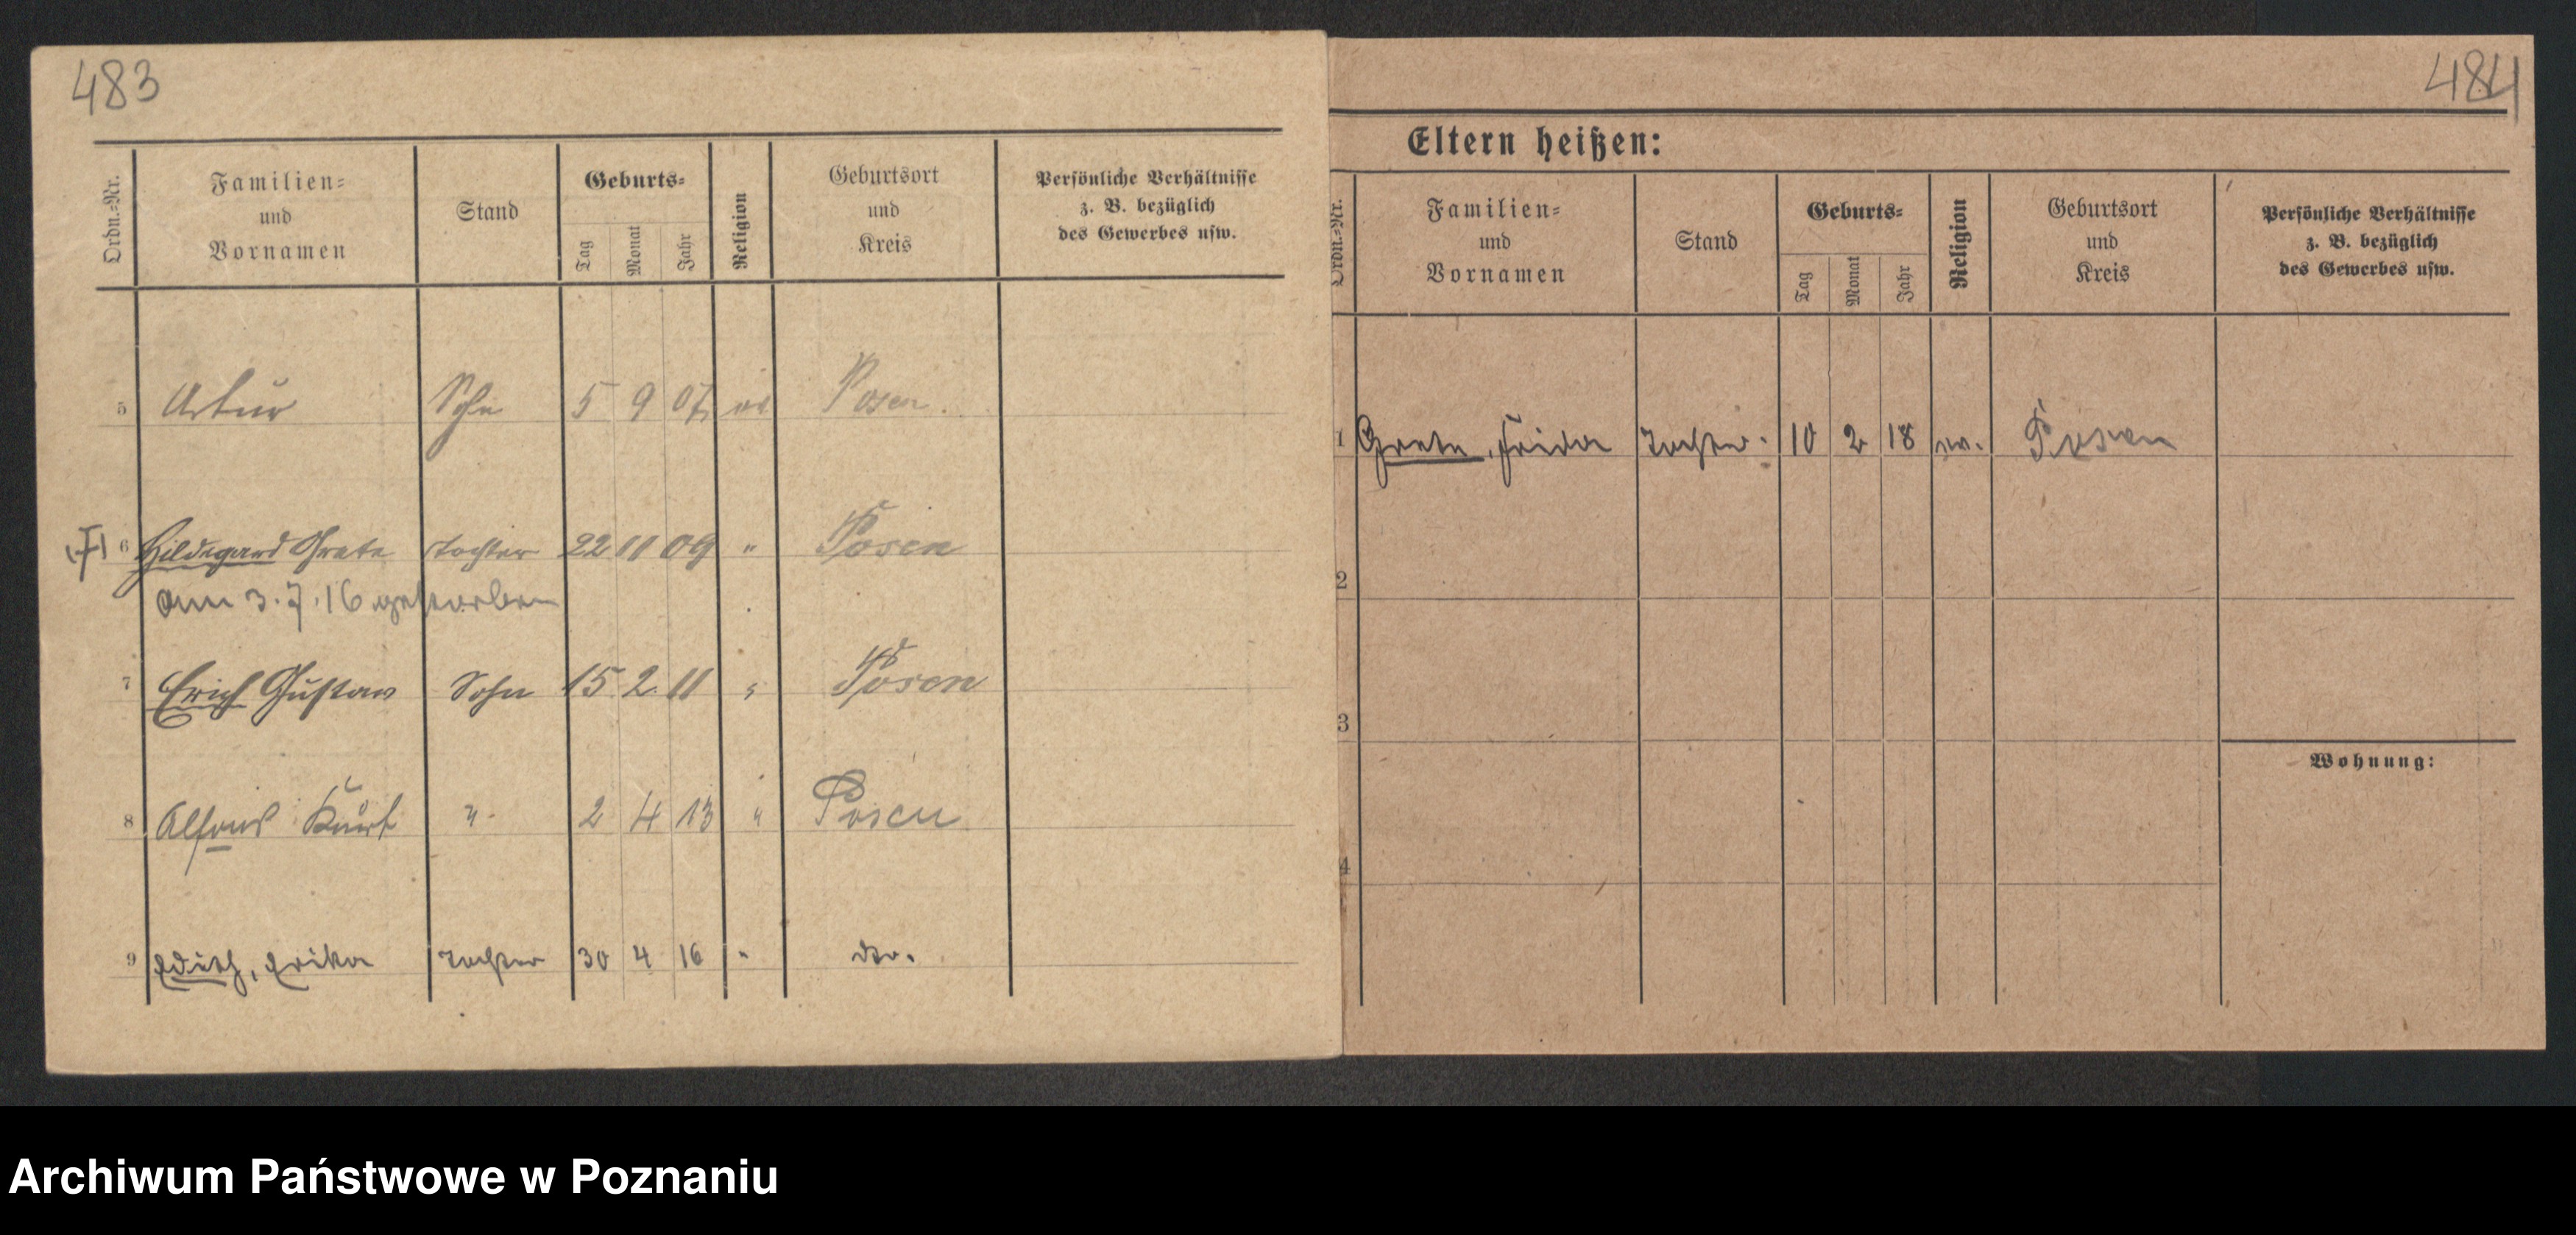 483
Ordn.-Nr.
Familien-
und
Vornamen
Stand
Geburts-
Tag Monat Jahr
Religion
Geburtsort
und
Kreis
Persönliche Verhältnisse
z. B. bezüglich
des Gewerbes usw.
5 Artur Sohn 5 9 07 ev Posen.
(†) 6 Hildegard Grete Tochter 22 11 09 " Posen
am 3.7.16 gestorben
7 Erich Gustav Sohn 15 2. 11 " Posen
8 Alfons Kurt " 2 4 13 " Posen
9 Edith, Erika Tochter 30 4 16 " do.
484
Eltern heißen:
Ordn.-Nr.
Familien-
und
Vornamen
Stand
Geburts-
Tag Monat Jahr
Religion
Geburtsort
und
Kreis
Persönliche Verhältnisse
z. B. bezüglich
des Gewerbes usw.
1 Grete, Frida Tochter. 10 2 18 ev. Posen
2
3
Wohnung:
4
Archiwum Państwowe w Poznaniu